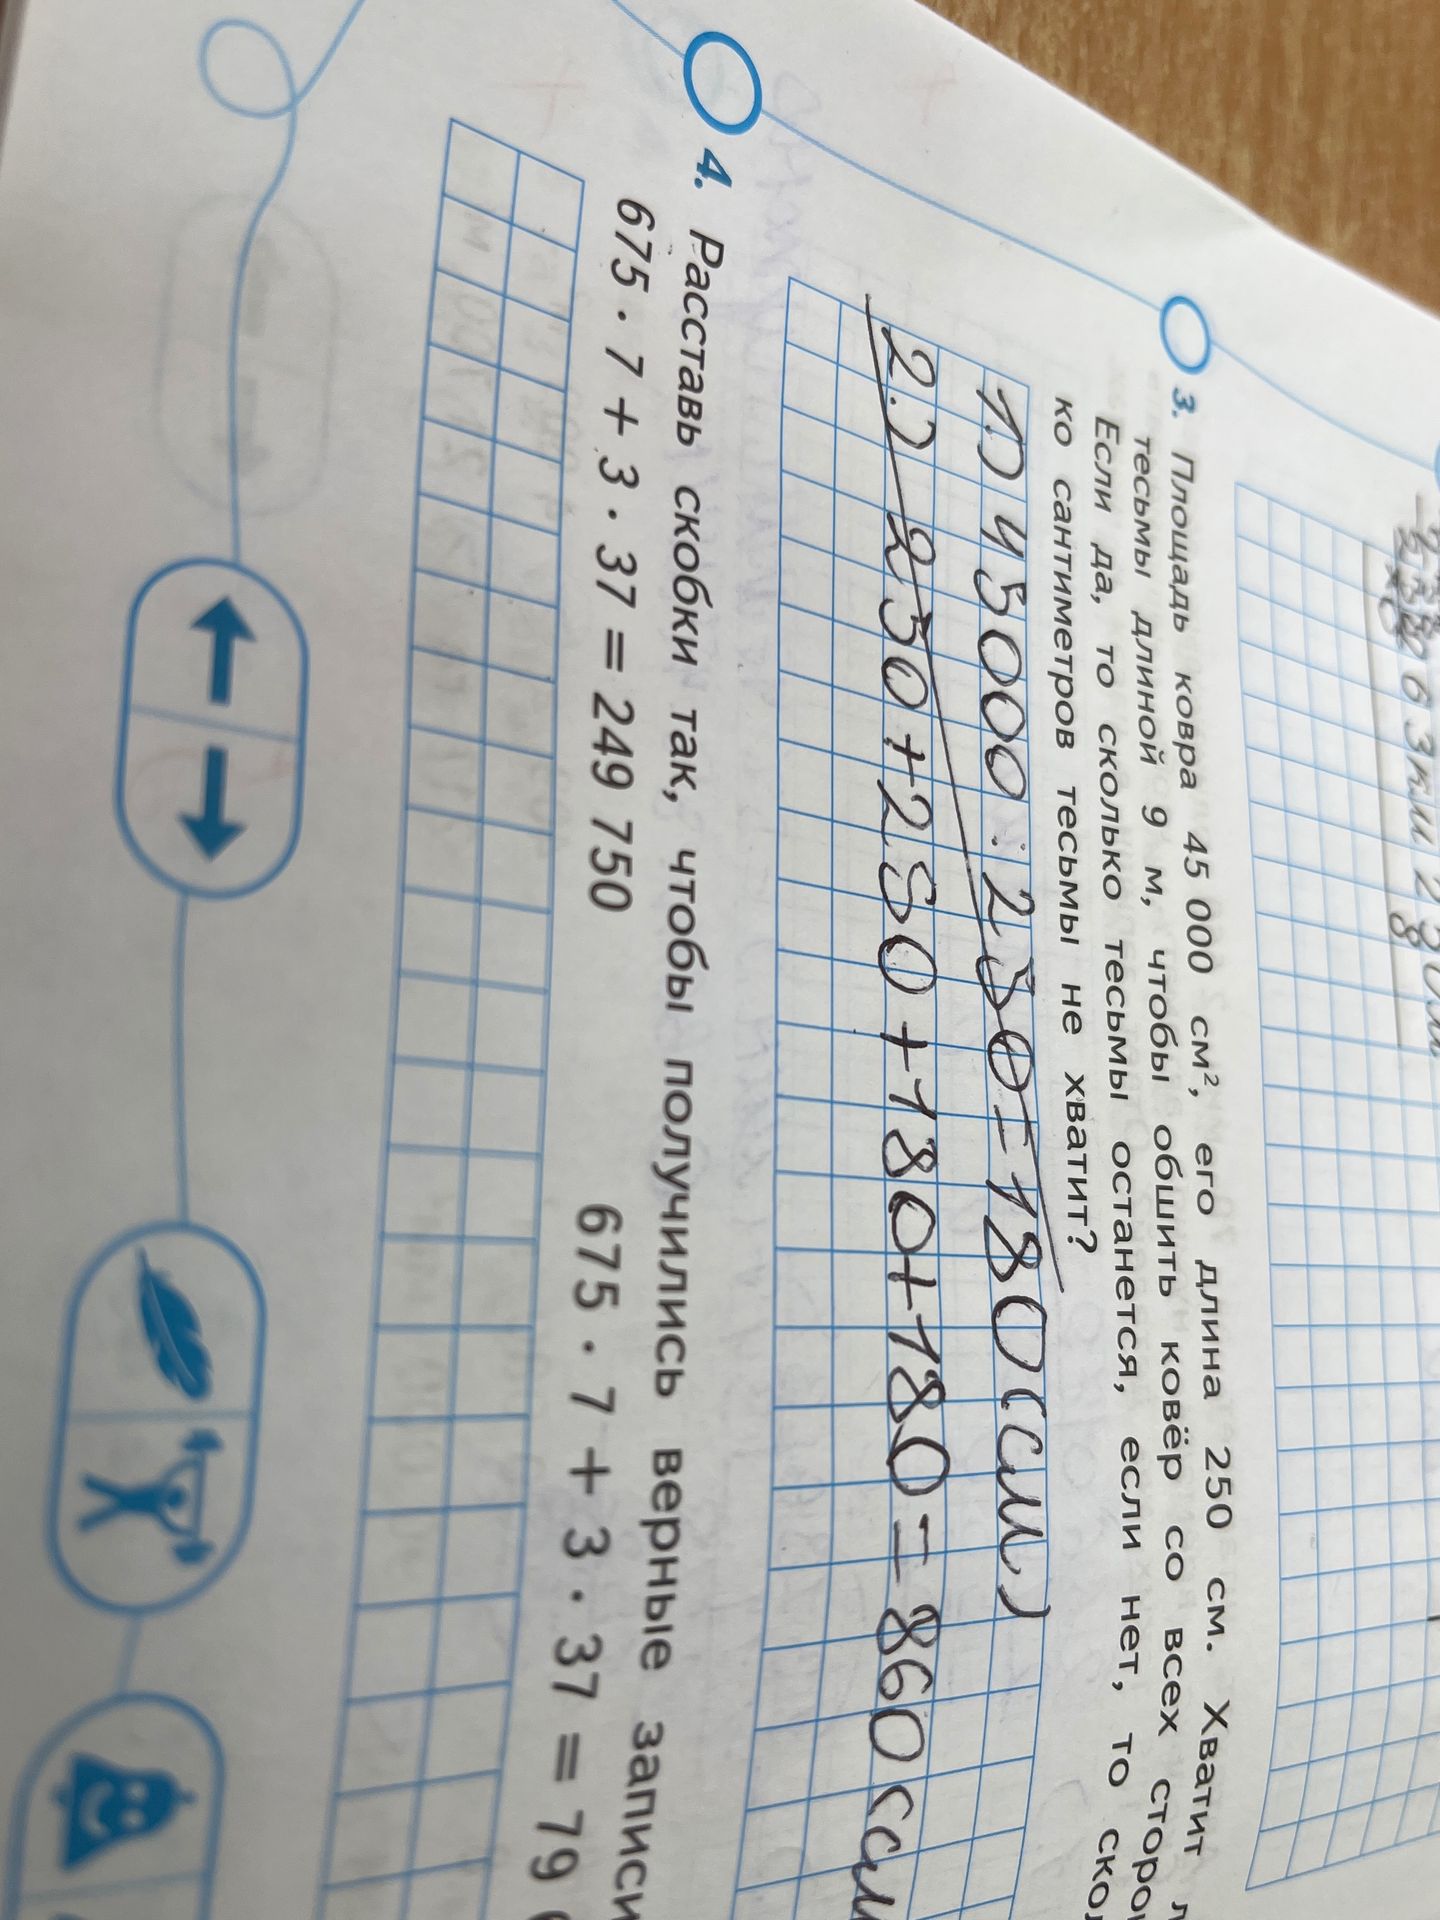 3. Площадь ковра 45 000 см², его длина 250 см. Хватит
тесьмы длиной 9 м, чтобы обшить ковёр со всех
Если да, то сколько тесьмы останется, если нет, то
ко сантиметров тесьмы не хватит?
1.) 45000 : 250 = 180 (см.)
2.) 250 + 250 + 180 + 180 = 860 (см
4. Расставь скобки так, чтобы получились верные записи
675 · 7 + 3 · 37 = 249 750 675 · 7 + 3 · 37 = 79